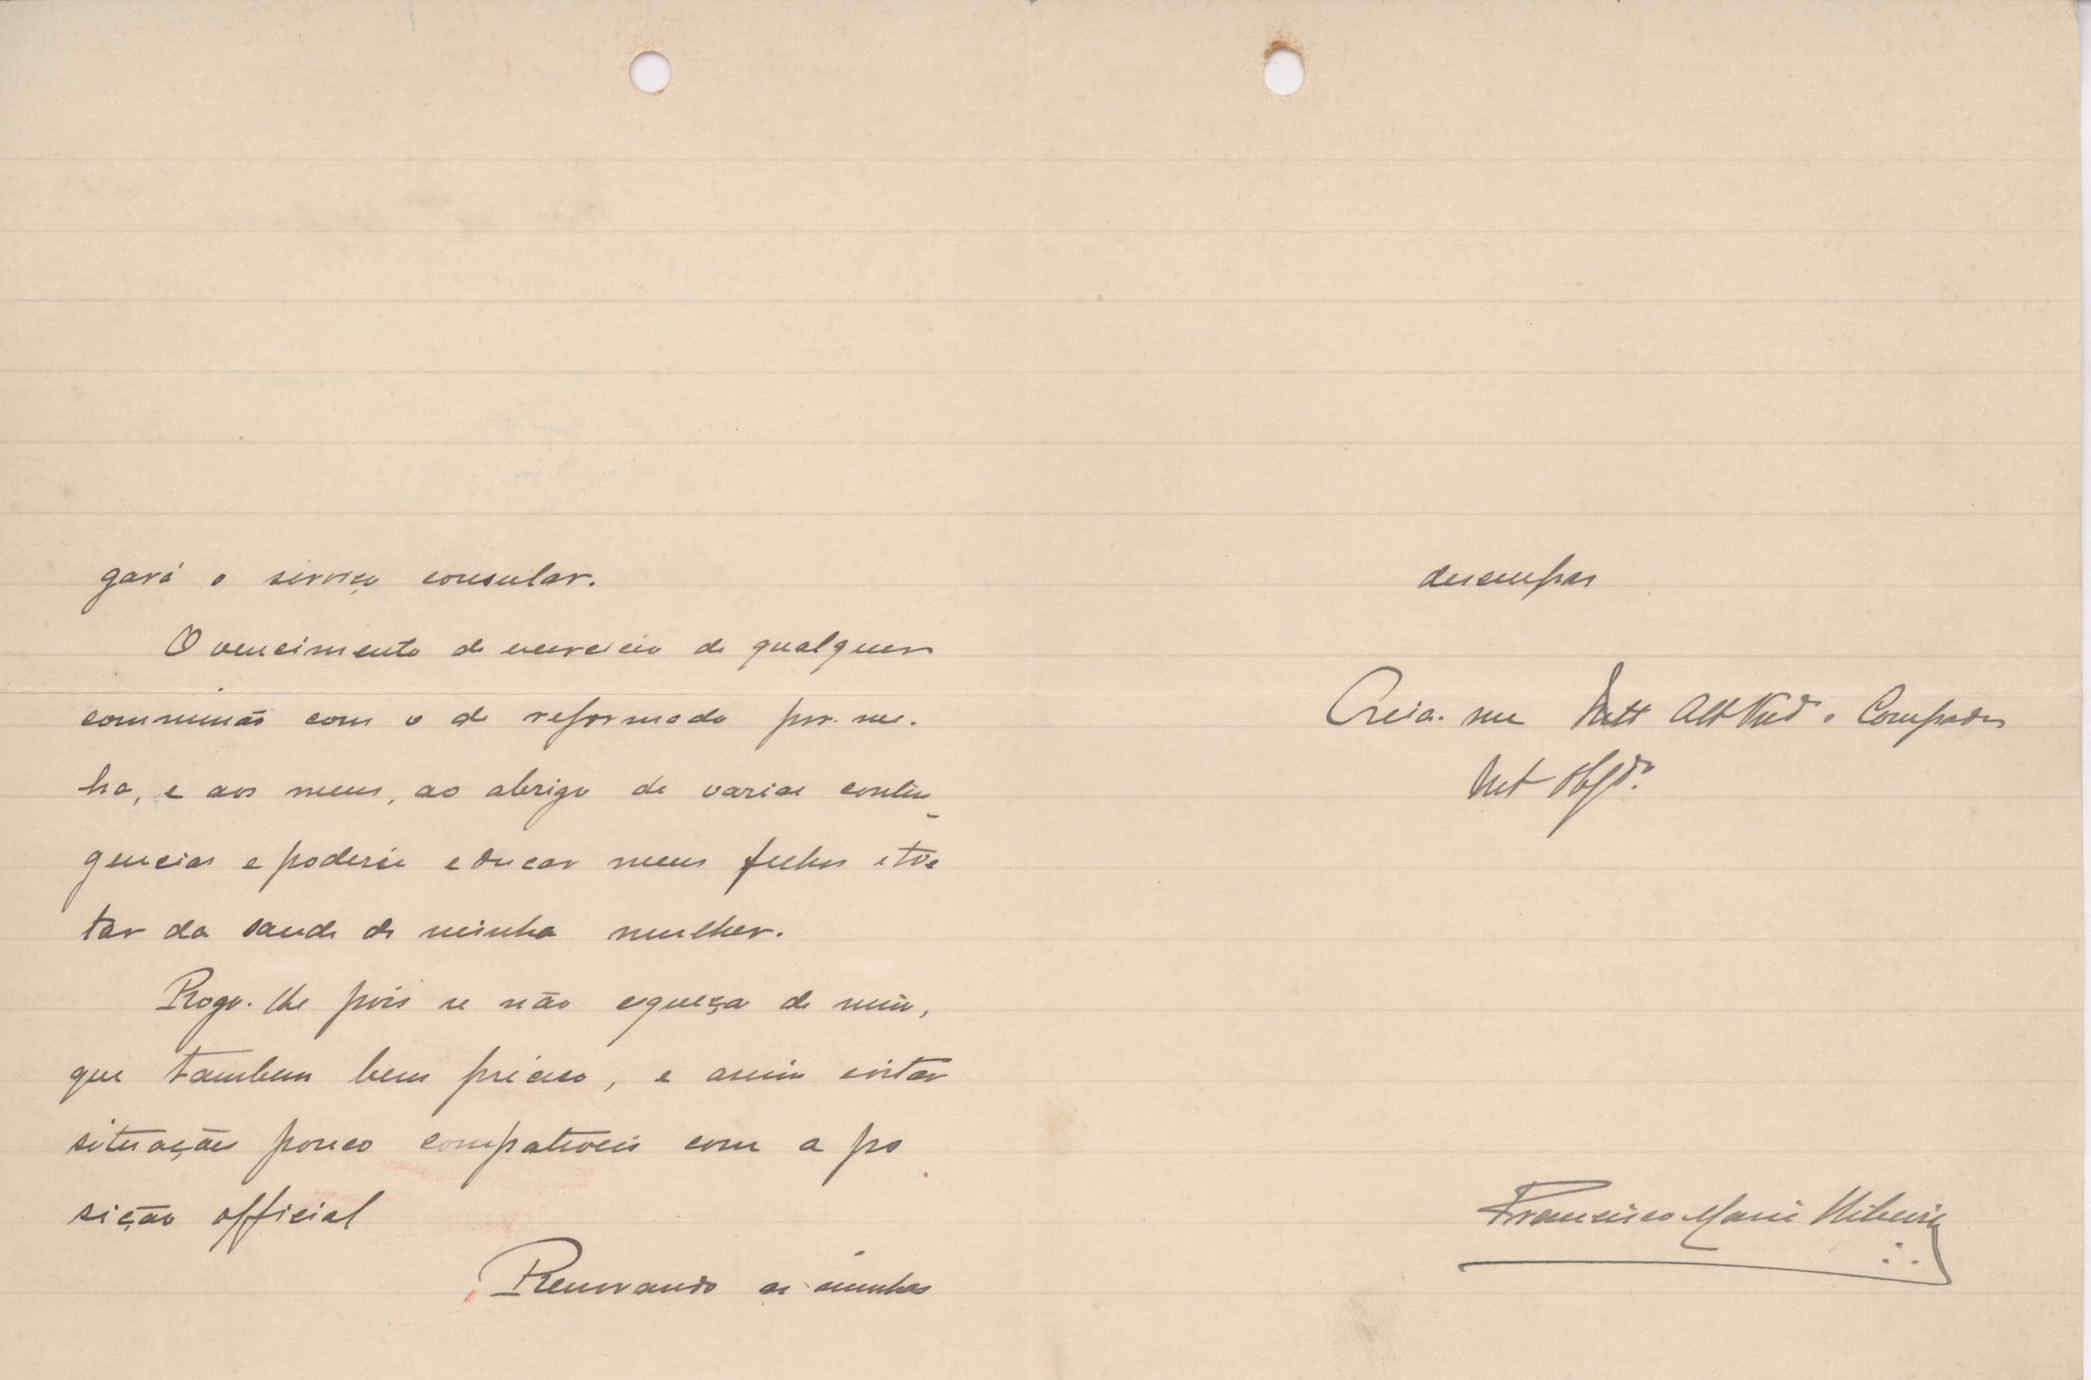 gará o serviço consular.
O vencimento de exercicio de qualquer
commissão com o de reformado por-me-
ha, e aos meus, ao abrigo de varias contin
gencias e poderei educar meus filhos e tra
tar da saude de minha mulher.
Rogo-lhe pois se não esqueça de mim,
que tambem bem preciso, e assim evitar
situações pouco compativeis com a po
sição official
Renovando as minhas
desculpas
Creia-me Compadre
Mt Obgdo.
Francisco Maria Ribeiro